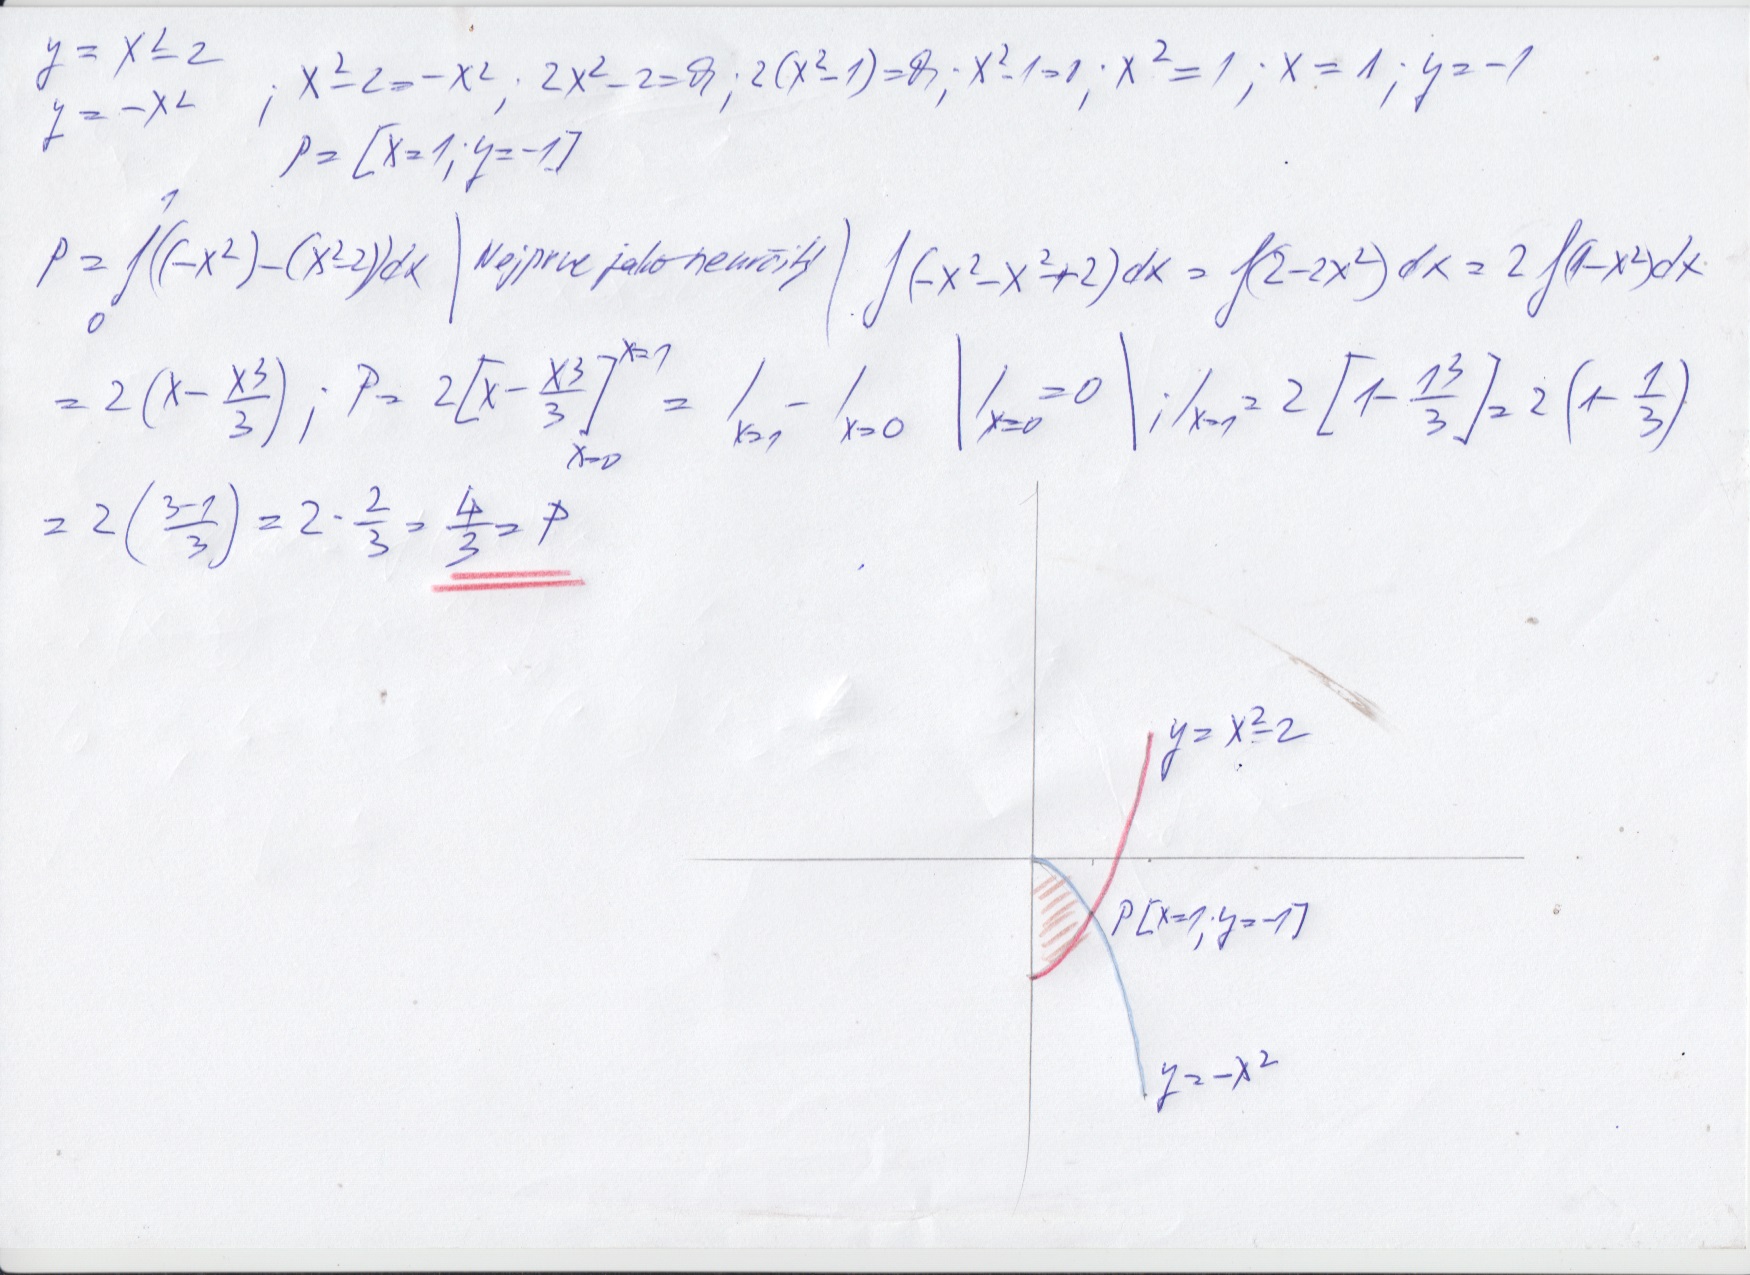 y = x² - 2
y = -x² ; x² - 2 = -x² ; 2x² - 2 = 0 ; 2(x² - 1) = 0 ; x² - 1 = 1 ; x² = 1 ; x = 1 ; y = -1
P = [x=1; y=-1]
P = ∫₀¹ ((-x²) - (x² - 2)) dx | Nejprve jako neurčitý | ∫(-x² - x² + 2) dx = ∫(2 - 2x²) dx = 2 ∫(1 - x²) dx
= 2 (x - x³/3) ; P = 2 [x - x³/3]ˣ⁼¹ₓ₌₀ = /ₓ₌₁ - /ₓ₌₀ | /ₓ₌₀ = 0 | ; /ₓ₌₁ = 2 [1 - 1³/3] = 2 (1 - 1/3)
= 2 (3-1/3) = 2 · 2/3 = 4/3 = P
y = x² - 2
P[x=1; y=-1]
y = -x²